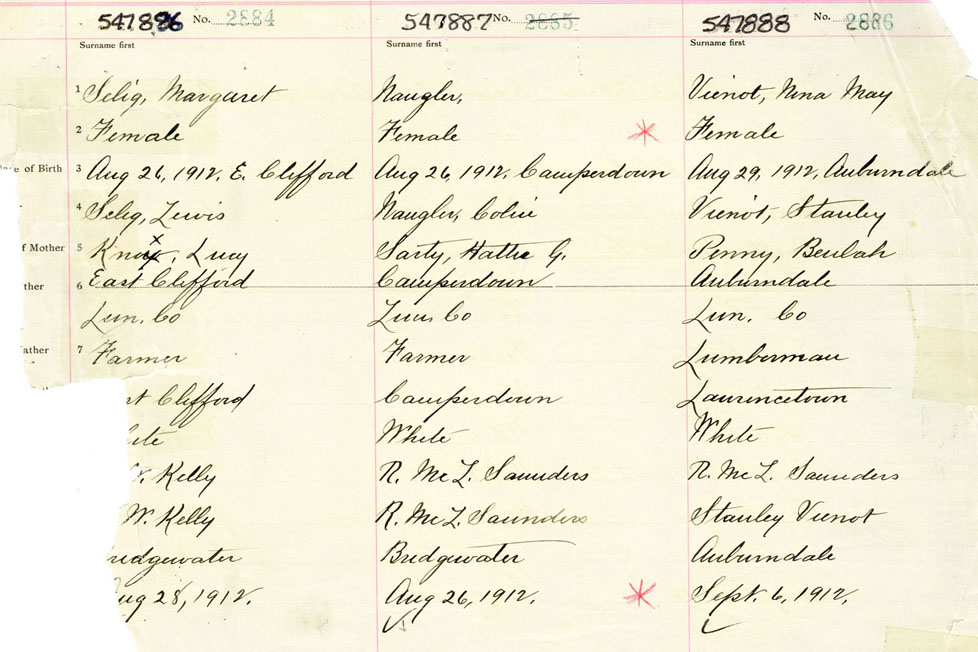 547886 No. 2884 547887 No. 2885 547888 No. 2886
Surname first Surname first Surname first
1 Selig, Margaret Naugler, Vienot, Nina May
2 Female Female Female
e of Birth 3 Aug 26, 1912, E. Clifford Aug 26, 1912, Camperdown Aug 29, 1912, Auburndale
4 Selig, Lewis Naugler, Colin Vienot, Stanley
f Mother 5 x Lucy Sarty, Hattie G. Penny, Beulah
ther 6 East Clifford Camperdown Auburndale
Lun. Co Lun. Co Lun. Co
ather 7 Farmer Farmer Lumberman
st Clifford Camperdown Laurencetown
hite White White
Kelly R. Mc L. Saunders R. Mc L. Saunders
W. Kelly R. Mc L. Saunders Stanley Vienot
ridgewater Bridgewater Auburndale
ug 28, 1912. Aug 26, 1912. Sept. 6, 1912.